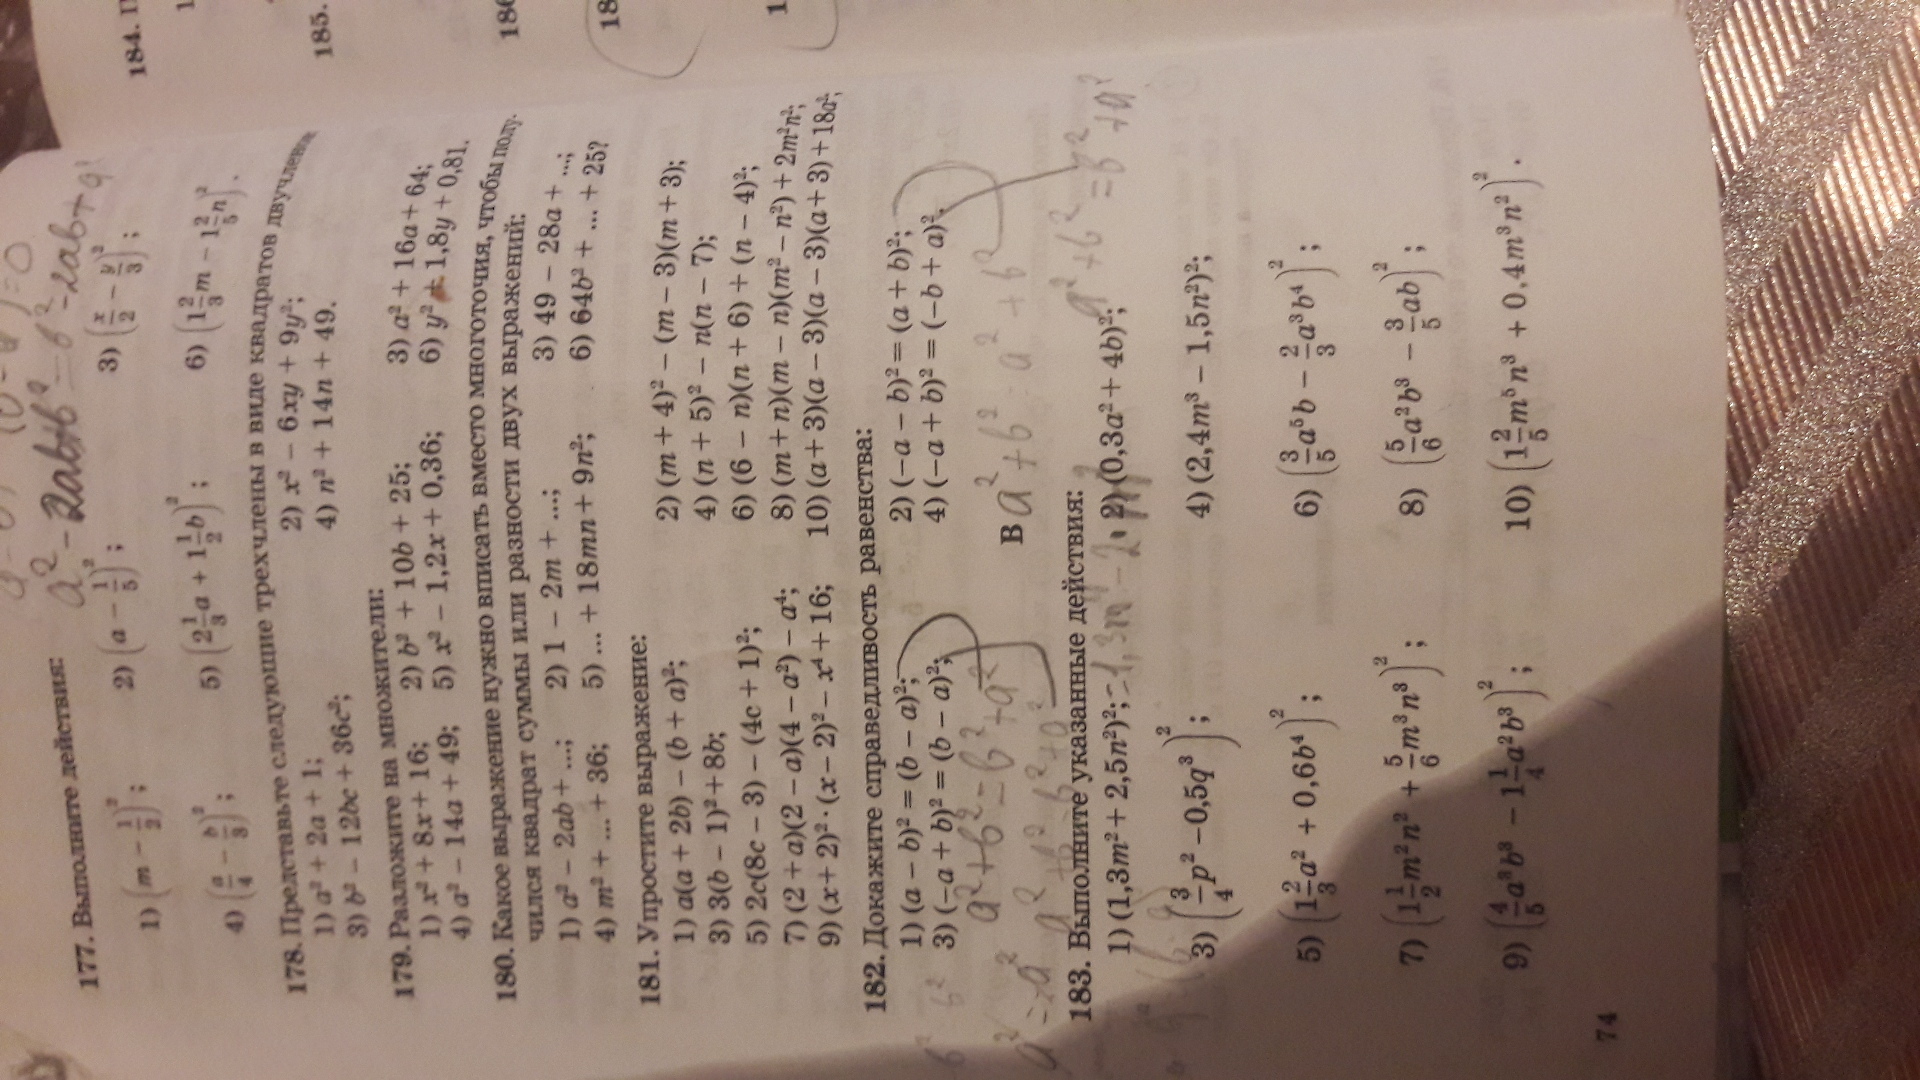 177. Выполните действия:
1) (m − 1/2)²; 2) (a − 1/5)²; 3) (x/2 − y/3)²;
4) (a/4 − b/3)²; 5) (2 1/3 a + 1 1/2 b)²; 6) (1 2/3 m − 1 2/5 n)².
178. Представьте следующие трехчлены в виде квадратов двучленов
1) a² + 2a + 1; 2) x² − 6xy + 9y²;
3) b² − 12bc + 36c²; 4) n² + 14n + 49.
179. Разложите на множители:
1) x² + 8x + 16; 2) b² + 10b + 25; 3) a² + 16a + 64;
4) a² − 14a + 49; 5) x² − 1,2x + 0,36; 6) y² ± 1,8y + 0,81.
180. Какое выражение нужно вписать вместо многоточия, чтобы полу-
чился квадрат суммы или разности двух выражений:
1) a² − 2ab + ...; 2) 1 − 2m + ...; 3) 49 − 28a + ...;
4) m² + ... + 36; 5) ... + 18mn + 9n²; 6) 64b² + ... + 25?
181. Упростите выражение:
1) a(a + 2b) − (b + a)²; 2) (m + 4)² − (m − 3)(m + 3);
3) 3(b − 1)² + 8b; 4) (n + 5)² − n(n − 7);
5) 2c(8c − 3) − (4c + 1)²; 6) (6 − n)(n + 6) + (n − 4)²;
7) (2 + a)(2 − a)(4 − a²) − a⁴; 8) (m + n)(m − n)(m² − n²) + 2m²n²;
9) (x + 2)² · (x − 2)² − x⁴ + 16; 10) (a + 3)(a − 3)(a − 3)(a + 3) + 18a²;
182. Докажите справедливость равенства:
1) (a − b)² = (b − a)²; 2) (−a − b)² = (a + b)²;
3) (−a + b)² = (b − a)²; 4) (−a + b)² = (−b + a)².
В
183. Выполните указанные действия:
1) (1,3m² + 2,5n²)²; 2) (0,3a² + 4b)²;
3) (3/4 p² − 0,5q³)²; 4) (2,4m³ − 1,5n²)²;
5) (1 2/3 a² + 0,6b⁴)²; 6) (3/5 a⁵b − 2/3 a³b⁴)²;
7) (1 1/2 m²n² + 5/6 m³n³)²; 8) (5/6 a²b³ − 3/5 ab)²;
9) (4/5 a³b³ − 1 1/4 a²b³)²; 10) (1 2/5 m⁵n³ + 0,4m³n²)².
74
184.
185.